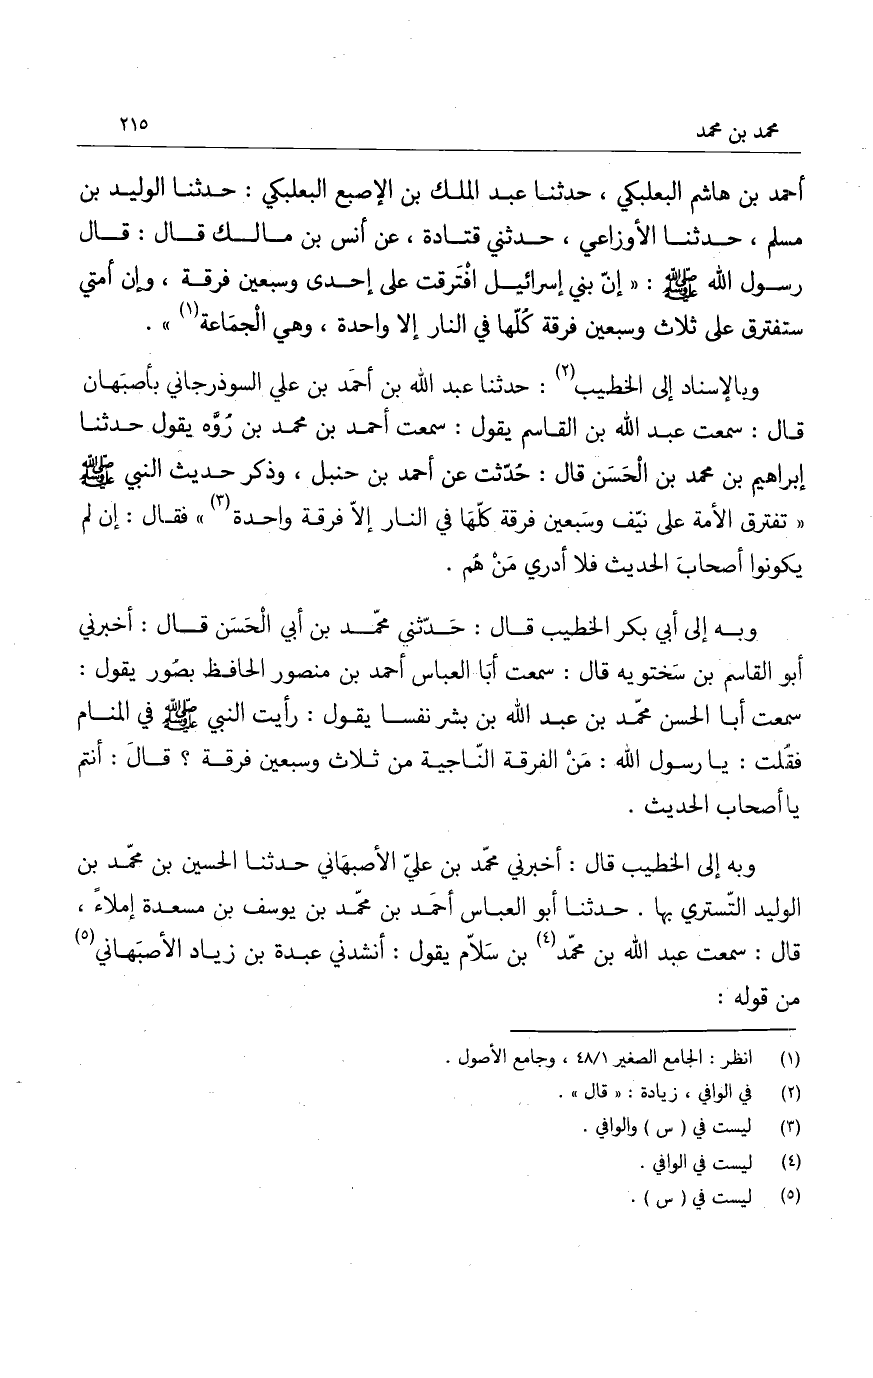 محمد بن محمد ٢١٥
أحمد بن هاشم البعلبكي ، حدثنا عبد الملك بن الإصبع البعلبكي : حدثنا الوليد بن
مسلم ، حدثنا الأوزاعي ، حدثني قتادة ، عن أنس بن مالك قال : قال
رسول الله ﷺ : « إنّ بني إسرائيل افْتَرقت على إحدى وسبعين فرقة ، وإن أمتي
ستفترق على ثلاث وسبعين فرقة كُلّها في النار إلا واحدة ، وهي الْجمَاعة(١) » .
وبالإسناد إلى الخطيب(٢) : حدثنا عبد الله بن أحمَد بن علي السوذرجاني بأصبَهان
قال : سمعت عبد الله بن القاسم يقول : سمعت أحمد بن محمد بن رُوَّه يقول حدثنا
إبراهيم بن محمد بن الْحَسَن قال : حُدّثت عن أحمد بن حنبل ، وذكر حديث النبي ﷺ
« تفترق الأمة على نيّف وسَبعين فرقة كلّهَا في النار إلاّ فرقة واحدة(٣) » فقال : إن لم
يكونوا أصحابَ الحديث فلا أدري مَنْ هُم .
وبه إلى أبي بكر الخطيب قال : حَدّثني محمّد بن أبي الْحَسَن قال : أخبرني
أبو القاسم بن سَختويه قال : سمعت أبَا العباس أحمد بن منصور الحافظ بصُور يقول :
سمعت أبا الحسن محمّد بن عبد الله بن بشر نفسا يقول : رأيت النبي ﷺ في المنام
فقُلت : يا رسول الله : مَنْ الفرقة النّاجية من ثلاث وسبعين فرقة ؟ قالَ : أنتم
يا أصحاب الحديث .
وبه إلى الخطيب قال : أخبرني محمّد بن عليّ الأصبهَاني حدثنا الحسين بن محمّد بن
الوليد التّستري بها . حدثنا أبو العباس أحمَد بن محمّد بن يوسف بن مسعدة إملاءً ،
قال : سمعت عبد الله بن محمّد(٤) بن سَلاّم يقول : أنشدني عبدة بن زياد الأصبَهاني(٥)
من قوله :
(١) انظر : الجامع الصغير ٤٨/١ ، وجامع الأصول .
(٢) في الوافي ، زيادة : « قال » .
(٣) ليست في ( س ) والوافي .
(٤) ليست في الوافي .
(٥) ليست في ( س ) .